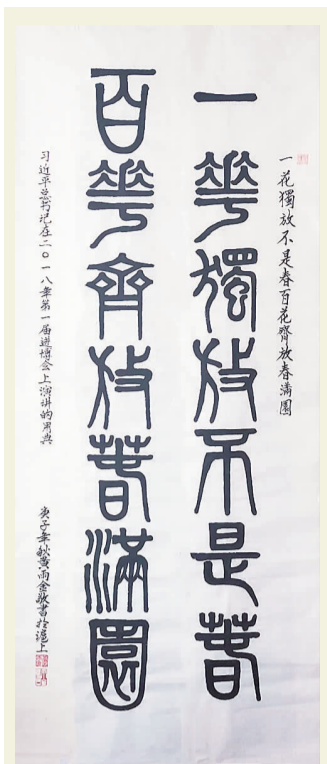 一花獨放不是春百花齊放春满園
一華獨放不是萅
百華齊放萅滿園
习近平总书记在二〇一八年第一届进博会上演讲的用典
庚子年秋黄雨金敬書於滬上